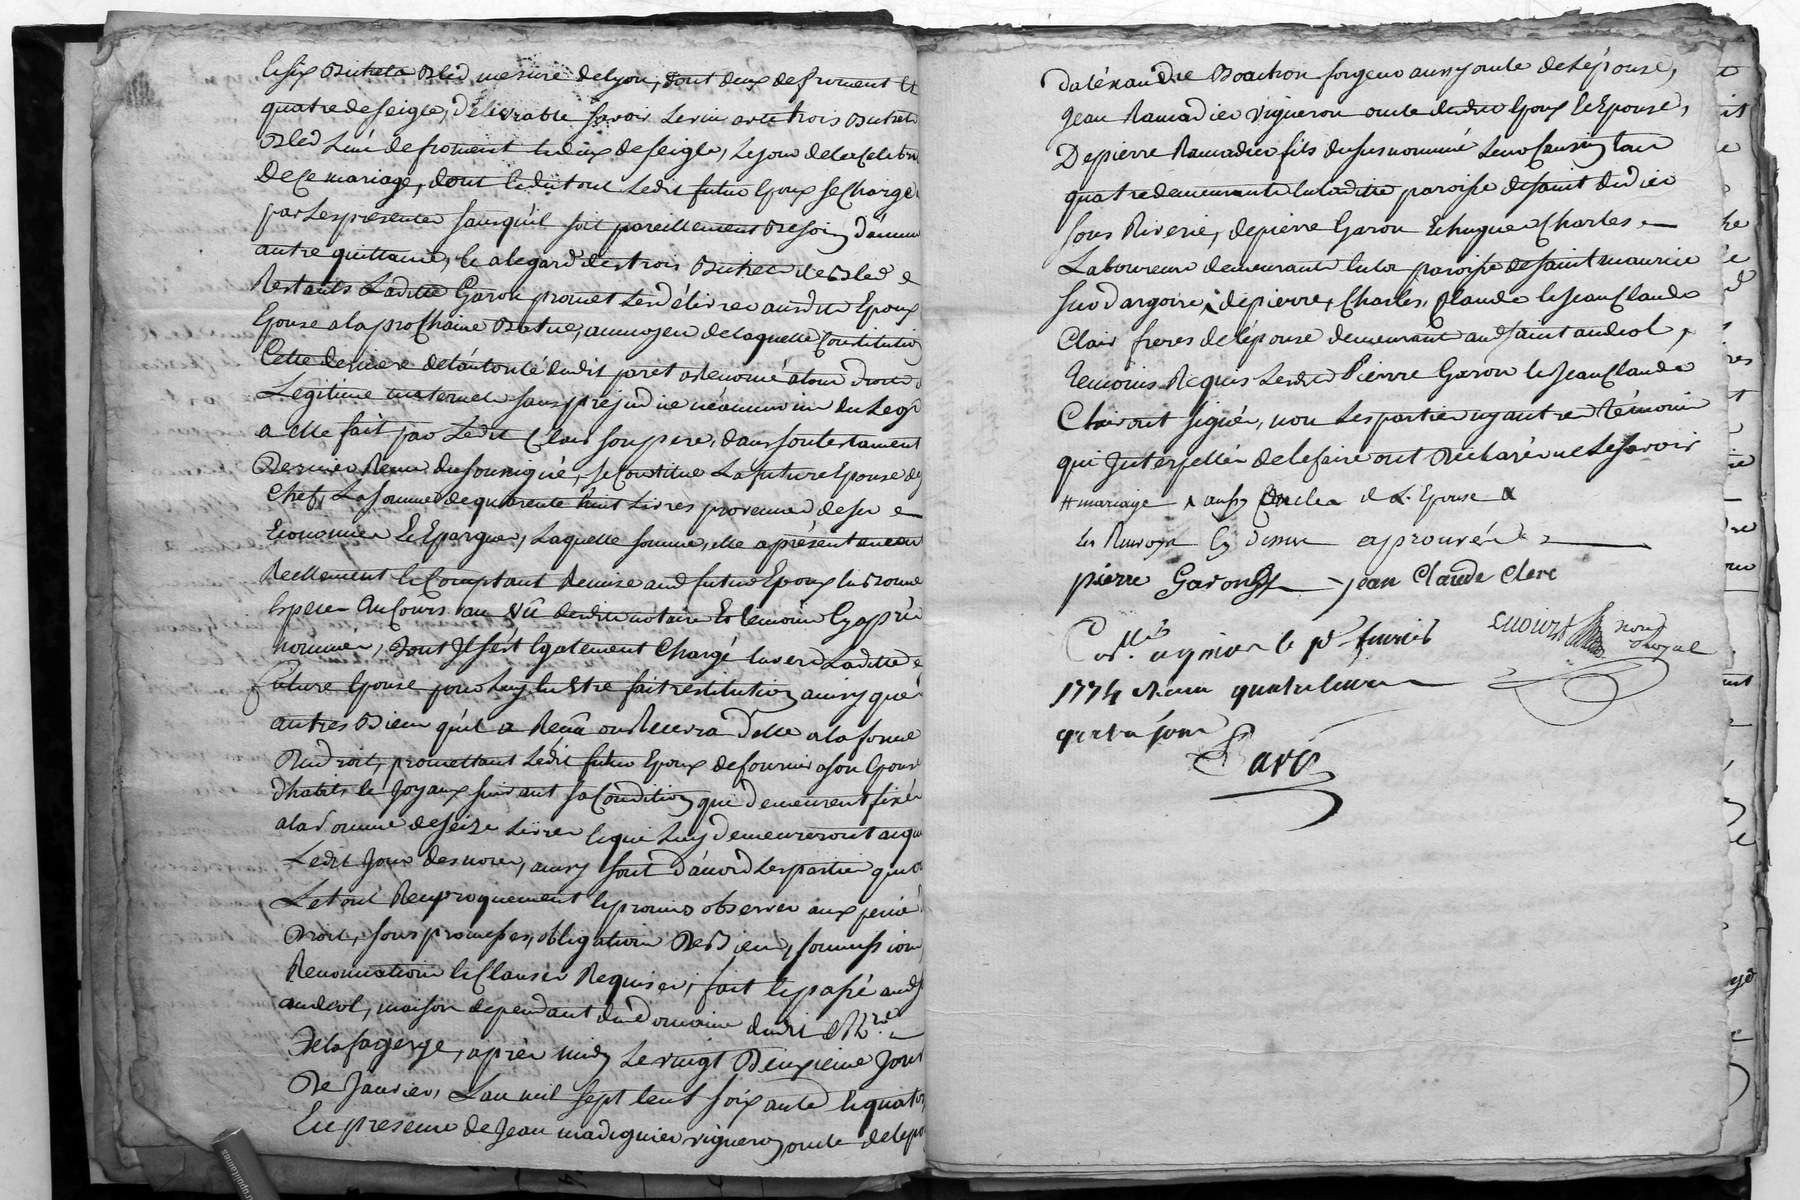 et six Bichets Bled mesure de lyon, dont deux de froment et
quatre de seigle, délivrable savoir Les trois Bichets
Bled L'un de froment les deux de seigle, Le jour de la Celebra
De Ce mariage, dont du tout Ledit futur Epoux se Charge
par Les presentes sans qu'il soit pareillement Besoin d'aucune
autre quittance, Et a legard des trois Bichets de Bled
Restants Laditte Garon promet Les délivrer auxdits Epoux
Epouse a la prochaine Battue, au moyen de laquelle Constitution
Cette derniere de l'autorité dudit a Renoncé a tous droits
Légitime maternel sans préjudice néanmoins du Legs
a elle fait par Ledit Clair son pere, dans son testament
Dernier Receu du soussigné, se Constitue La future Epouse de
Chef, La somme de quarente huit Livres provenue de ses
Economies Et Epargnes, Laquelle somme, elle a présentement
Reellement Et Comptant Remise aud futur Epoux en Bonnes
Especes au Cours au Vû dudit notaire Et temoins Cy après
nommés, dont Il s'est Egalement Chargé envers Laditte
future Epouse pour Luy en Etre fait restitution ainsy que
autres Biens qu'il a Reçu ou Recevra d'elle a la forme
Du droit, promettant Ledit futur Epoux de fournir a son Epouse
d'habits Et Joyaux suivant sa Condition qui demeurent fixés
a la somme de seize Livres Et qui Luy demeureront acquis
Ledit Jour des noces, ainsy sont d'accord Les parties qui ont
Le tout Reciproquement Et promis observer aux peines
Droit, sous promesses, obligation De Biens, soumissions
Renonciations Et Clauses Requises, fait Et passé aud st
andeol, maison dependant du Domaine dudit Mre
De la fagerge, après midy Le vingt Deuxieme Jour
De Janvier, L'an mil sept Cent soixante Et quatorze
En presence de Jean madignier vigneron oncle de lepouse
D'aléxandre Boachon forgeur aussy oncle de Lépouse,
Jean Ramadier vigneron oncle dudit Epoux Et Epouse,
De pierre Ramadier fils du susnommé Leur Cousin tous
quatre demeurants en laditte paroisse de saint didier
sous Riverie, de pierre Garon Et hugues Charles
Laboureurs demeurants en la paroisse de saint maurice
sur dargoire, de pierre, Charles, Claude Et Jean Claude
Clair freres de l'épouse demeurant aud saint andeol,
temoins Requis Lesdits Pierre Garon Et Jean Claude
Clair ont signé, non Les parties ny autres témoins
qui Interpellés de le faire ont Déclaré ne Le savoir
# mariage aussy oncles de L. Epouse
Les Renvois Cy dessus approuvés
pierre Garon jean Claude Clerc
notr Royal
Coll.é a rivier le pr fevrier
1774 Receu quatre livres
quatre sous
Paré